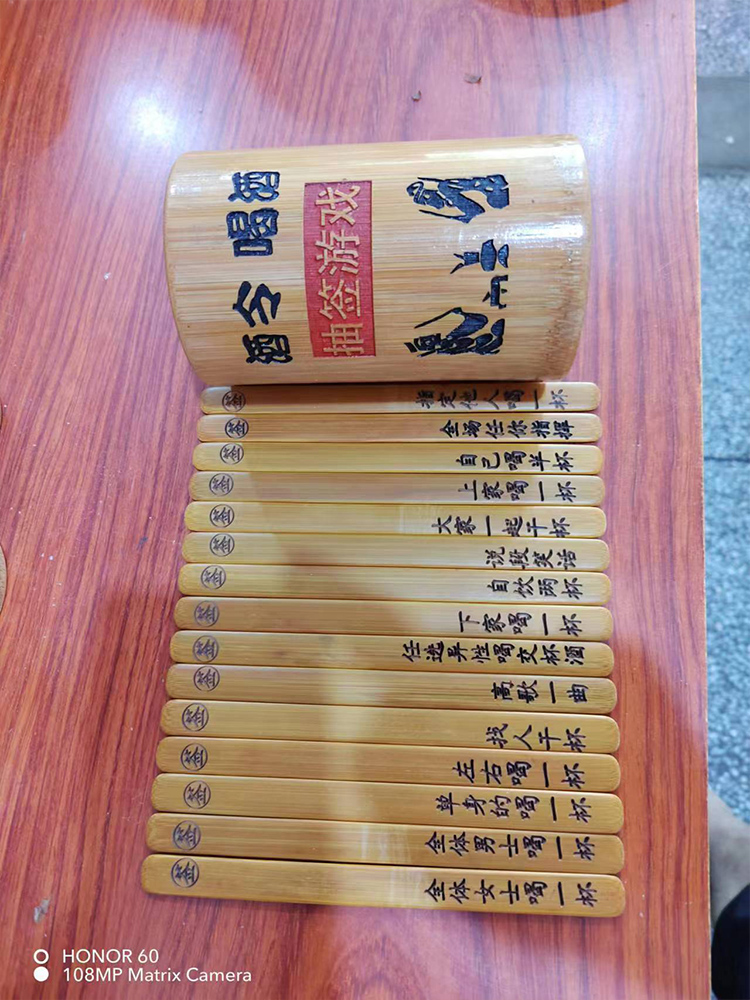 酒令喝酒
抽签游戏
签 指定他人喝一杯
签 全场任你指挥
签 自己喝半杯
签 上家喝一杯
签 大家一起干杯
签 说段笑话
签 自饮两杯
签 下家喝一杯
签 任选异性喝交杯酒
签 高歌一曲
签 找人干杯
签 左右喝一杯
签 单身的喝一杯
签 全体男士喝一杯
签 全体女士喝一杯
HONOR 60
108MP Matrix Camera